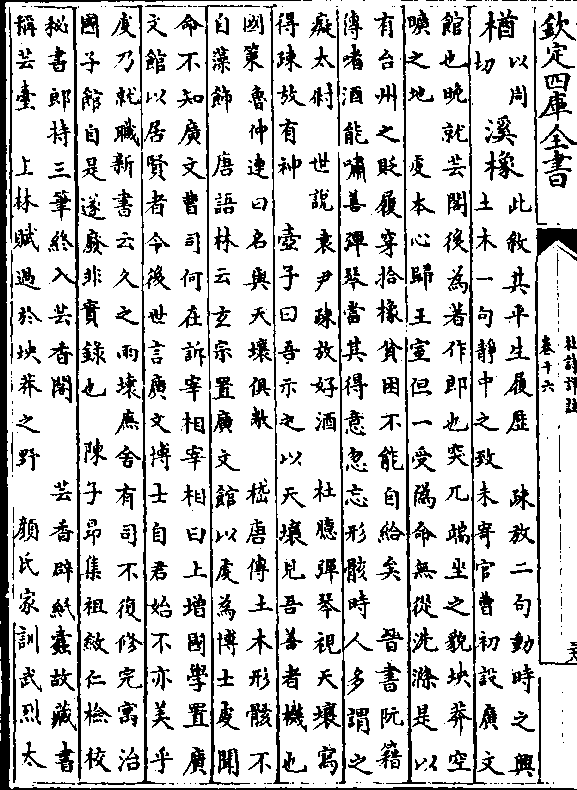 欽定四庫全書
杜詩詳註
卷十六
楢以周切溪橡此敘其平生履歷 疎放二句動時之興
土木一句靜中之致未寄官曹初設廣文
館也晚就芸閣後為著作郎也突兀端坐之貌坱莽空
曠之地 虔本心歸王室但一受偽命無從洗滌是以
有台州之貶履穿拾橡貧困不能自給矣 晉書阮籍
傳嗜酒能嘯善彈琴當其得意忽忘形骸時人多謂之
癡太 世說袁尹疎放好酒 杜臆彈琴視天壤寫
得疎放有神 壺子曰吾示之以天壤見吾善者機也
國策魯仲連曰名與天壤俱敝 嵇唐傳土木形骸不
自藻飾 唐語林云玄宗置廣文館以虔為博士虔聞
命不知廣文曹司何在訴宰相宰相曰上增國學置廣
文館以居賢者令後世言廣文博士自君始不亦美乎
虔乃就職新書云久之雨壞廡舍有司不復修完寓治
國子館自是遂廢非實錄也 陳子昂集祖敏仁檢校
秘書郎持三筆終入芸香閣 芸香辟紙蠹故藏書
稱芸臺 上林賦過於坱莽之野 顏氏家訓武烈太